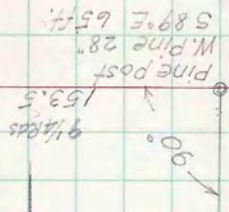 90°
9¼ Rds
153.5
Pine post
W. Pine 28"
S 89°E 65 ft.